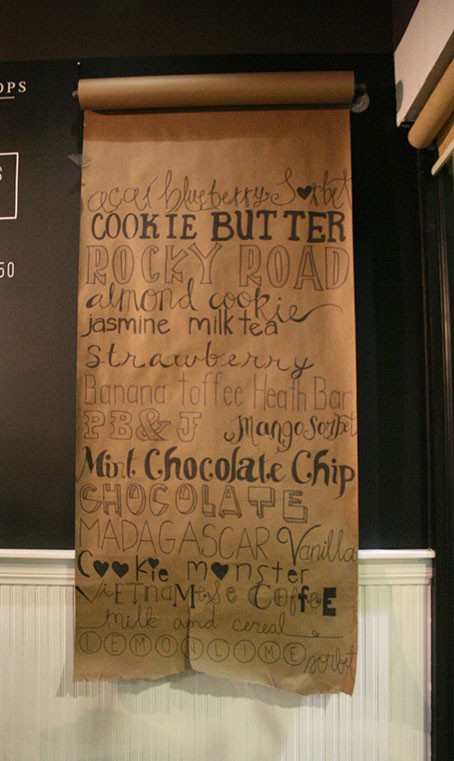 OPS
S
50
acai blueberry Sorbet
COOKIE BUTTER
ROCKY ROAD
almond cookie
jasmine milk tea
strawberry
Banana toffee Heath Bar
PB&J Mango Sorbet
Mint Chocolate Chip
CHOCOLATE
MADAGASCAR Vanilla
Cookie monster
ViETnaMeSe CoffeE
milk and cereal
LEMONLIME sorbet